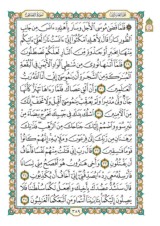 سورة القصص
الجزء العشرون
۞ فَلَمَّا قَضَىٰ مُوسَى ٱلْأَجَلَ وَسَارَ بِأَهْلِهِۦٓ ءَانَسَ مِن جَانِبِ
ٱلطُّورِ نَارًا قَالَ لِأَهْلِهِ ٱمْكُثُوٓا۟ إِنِّىٓ ءَانَسْتُ نَارًا لَّعَلِّىٓ ءَاتِيكُم
مِّنْهَا بِخَبَرٍ أَوْ جَذْوَةٍ مِّنَ ٱلنَّارِ لَعَلَّكُمْ تَصْطَلُونَ
فَلَمَّآ أَتَىٰهَا نُودِىَ مِن شَـٰطِئِ ٱلْوَادِ ٱلْأَيْمَنِ فِى ٱلْبُقْعَةِ
ٱلْمُبَـٰرَكَةِ مِنَ ٱلشَّجَرَةِ أَن يَـٰمُوسَىٰٓ إِنِّىٓ أَنَا ٱللَّهُ رَبُّ ٱلْعَـٰلَمِينَ
وَأَنْ أَلْقِ عَصَاكَ فَلَمَّا رَءَاهَا تَهْتَزُّ كَأَنَّهَا جَآنٌّ وَلَّىٰ
مُدْبِرًا وَلَمْ يُعَقِّبْ يَـٰمُوسَىٰٓ أَقْبِلْ وَلَا تَخَفْ إِنَّكَ
مِنَ ٱلْـَٔامِنِينَ ٱسْلُكْ يَدَكَ فِى جَيْبِكَ تَخْرُجْ بَيْضَآءَ مِنْ
غَيْرِ سُوٓءٍ وَٱضْمُمْ إِلَيْكَ جَنَاحَكَ مِنَ ٱلرَّهْبِ فَذَٰنِكَ
بُرْهَـٰنَانِ مِن رَّبِّكَ إِلَىٰ فِرْعَوْنَ وَمَلَإِي۟هِۦٓ إِنَّهُمْ كَانُوا۟ قَوْمًا
فَـٰسِقِينَ قَالَ رَبِّ إِنِّى قَتَلْتُ مِنْهُمْ نَفْسًا فَأَخَافُ
أَن يَقْتُلُونِ وَأَخِى هَـٰرُونُ هُوَ أَفْصَحُ مِنِّى لِسَانًا
فَأَرْسِلْهُ مَعِىَ رِدْءًا يُصَدِّقُنِىٓ إِنِّىٓ أَخَافُ أَن يُكَذِّبُونِ
قَالَ سَنَشُدُّ عَضُدَكَ بِأَخِيكَ وَنَجْعَلُ لَكُمَا سُلْطَـٰنًا فَلَا
يَصِلُونَ إِلَيْكُمَا بِـَٔايَـٰتِنَآ أَنتُمَا وَمَنِ ٱتَّبَعَكُمَا ٱلْغَـٰلِبُونَ
٣٨٩